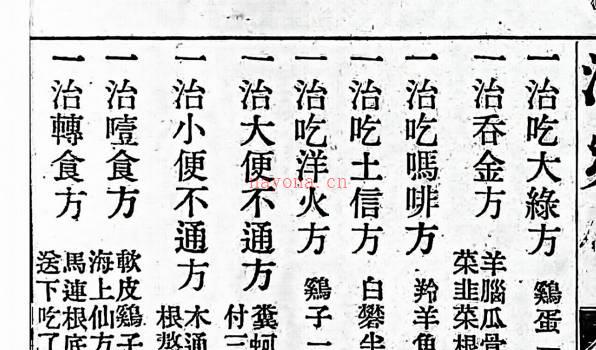 一治吃大綠方 鷄蛋一
一治吞金方 羊腦瓜骨
菜韭菜根
一治吃嗎啡方 羚羊角
一治吃土信方 白礬半
一治吃洋火方 鷄子一
一治大便不通方 糞蚵
付三
一治小便不通方 木通
根熬
一治噎食方 軟皮鷄子
海上仙方
一治轉食方 馬連根底
送下吃了
nayona.cn